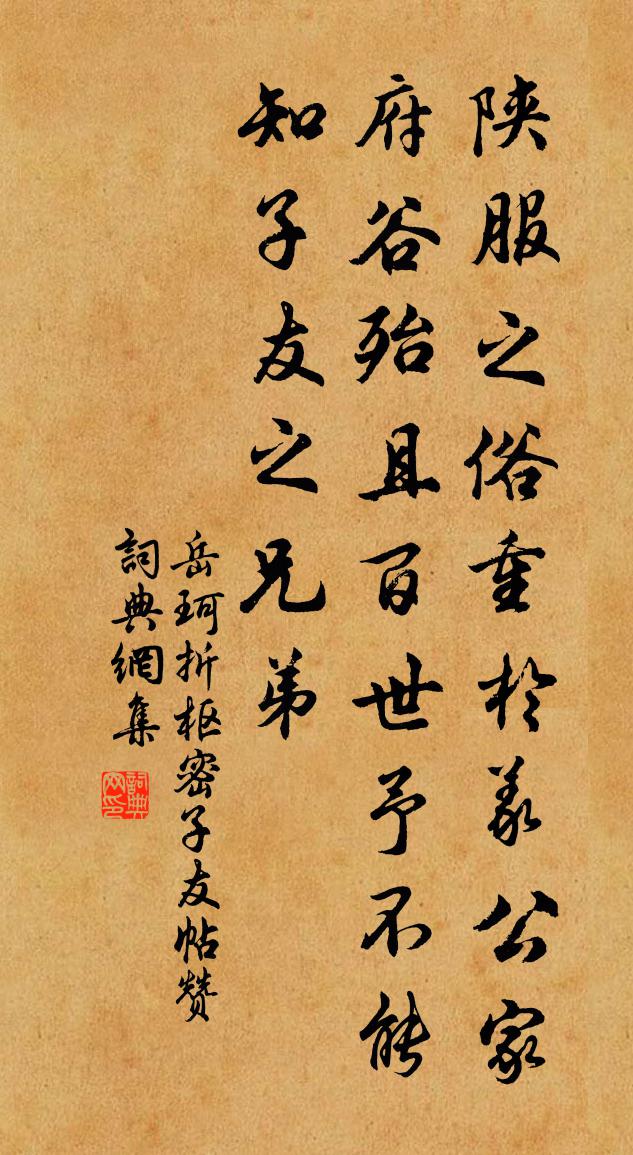 陕服之俗重於义公家
府谷殆且百世予不能
知子友之兄弟
岳珂折枢密子友帖赞
詞典網集
詞典网印